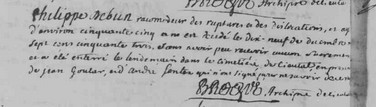 Philippe Debun racomodeur des ruptures et des dislocations, et agé
d'environ cinquante cinq ans est décédé le dix-neuf de decembre mil
sept cens cinquante trois, sans avoir peu recevoir aucun sacrement
et a été enterré le lendemain dans le cimetière de Cieutat en présence
de jean Goutas, et d'andré fontan qui n'ont signé pour ne savoir de ce
Archiptre de